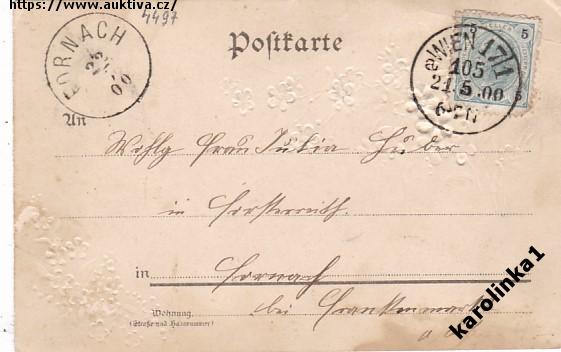 https://www.auktiva.cz/
4497
FORNACH
00
Postkarte
5 5
WIEN 17/1
105
21.5.00
6-7N
An
Wohlg Frau Julia Huber
in Forsterreith.
in Fornach
bei Frankenmarkt
Wohnung
(Straße und Hausnummer)
karolinka1